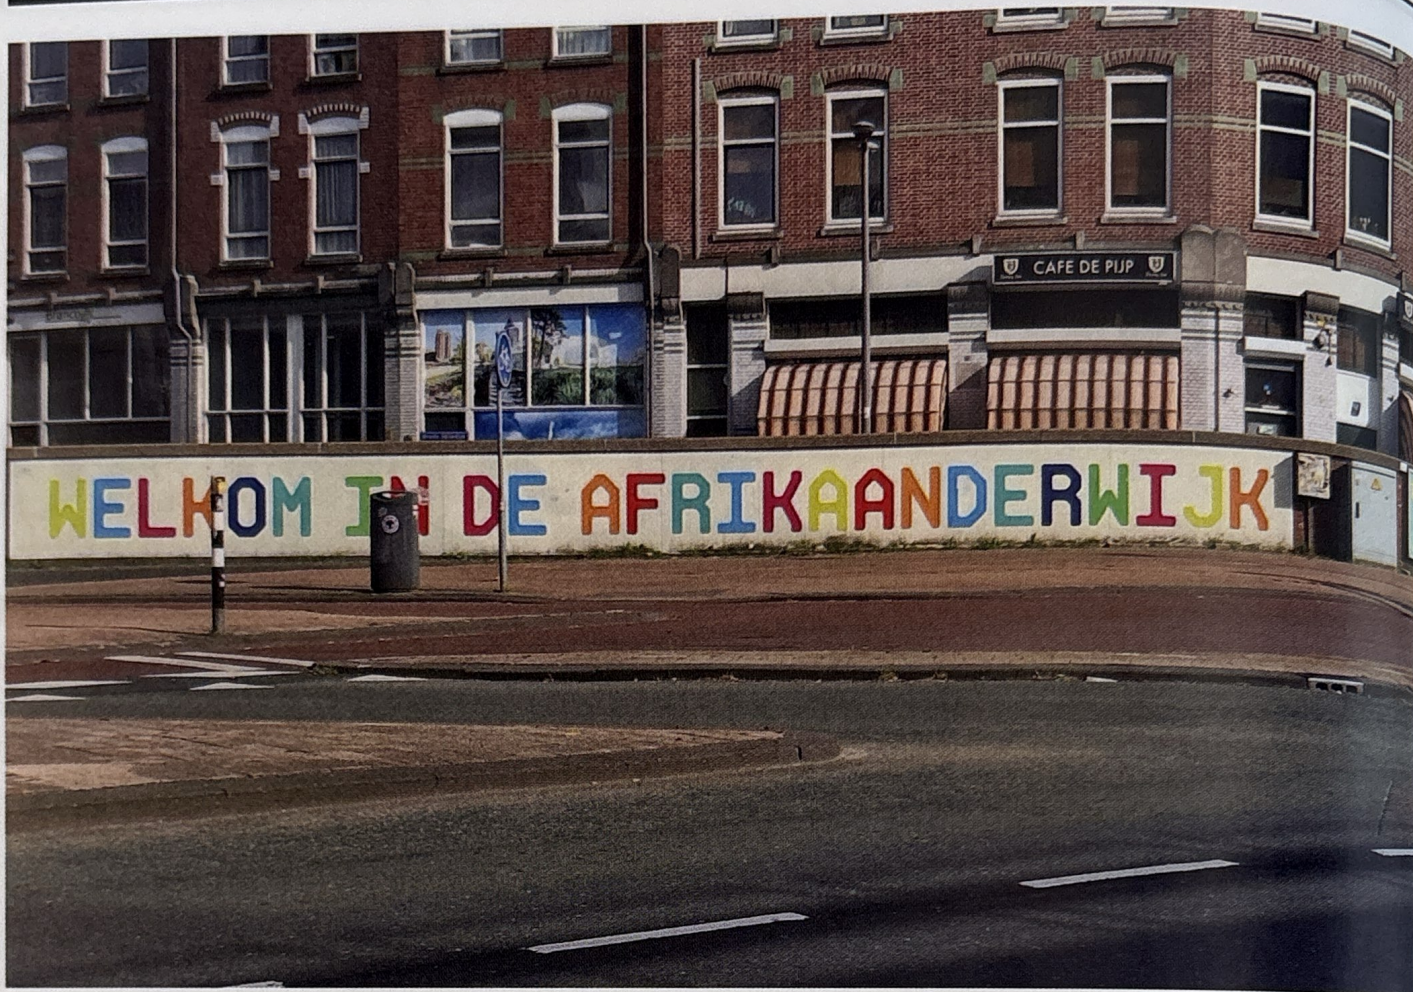 CAFE DE PIJP
WELKOM IN DE AFRIKAANDERWIJK